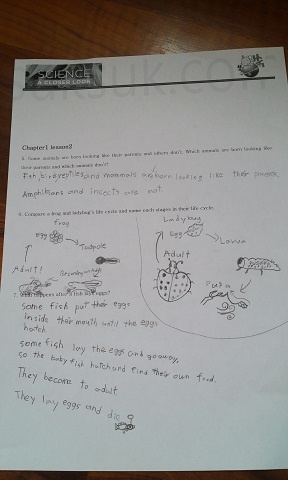 SCIENCE
A CLOSER LOOK
Chapter1 lesson2
5. Some animals are born looking like their parents and others don't. Which animals are born looking like
their parents and which animals don't?
Fish, birds, reptiles, and mammals are born looking like their parents.
Amphibians and insects are not.
6. Compare a frog and ladybug's life cycle and name each stages in their life cycle.
frog
egg
Tadpole
Adult!
Ladybug
Egg
Larva
Adult
Pupa
7. What happens after a fish lays eggs?
some fish put their eggs
inside their mouth until the eggs
hatch.
some fish lay the eggs and go away,
so the baby fish hatch and find their own food.
They become to adult
They lay eggs and die